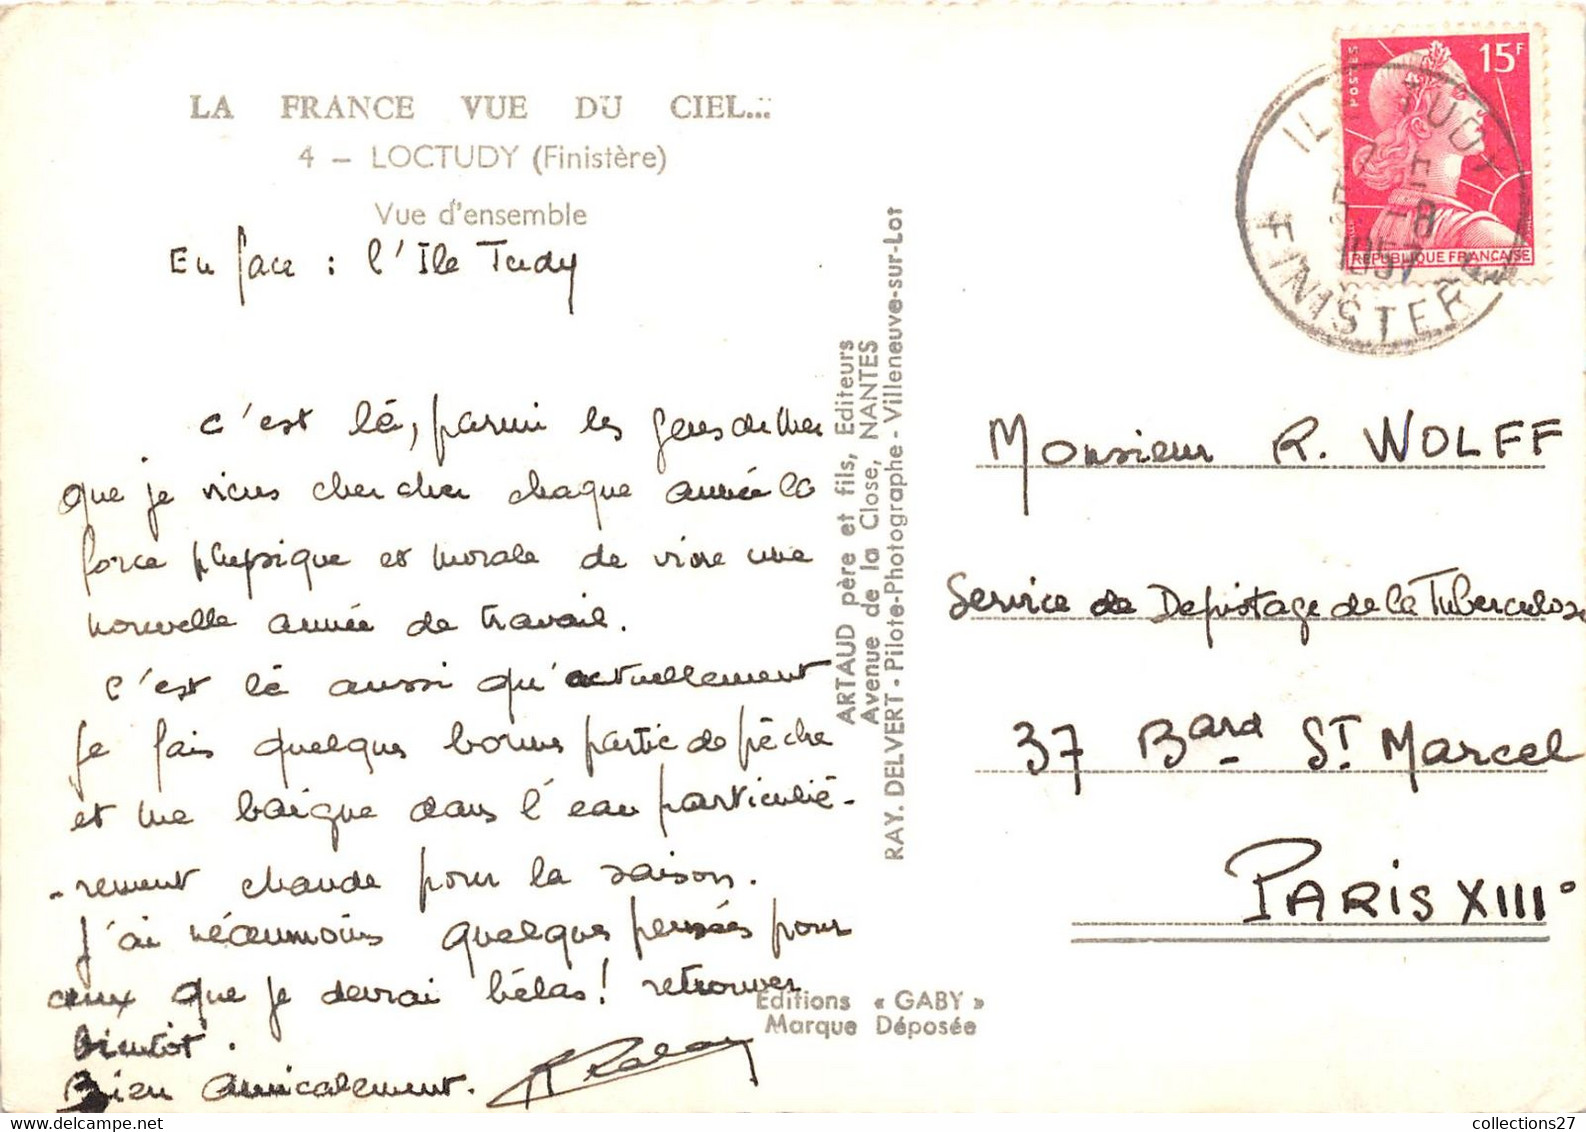 LA FRANCE VUE DU CIEL...
4 - LOCTUDY (Finistère)
Vue d'ensemble
En face : l'Ile Tudy
C'est là, parmi les gens de Mer
que je viens chercher chaque année la
force physique et morale de vivre une
nouvelle année de travail.
C'est là aussi qu'actuellement
je fais quelques bonnes partie de pêche
et me baigne dans l'eau particuliè-
-rement chaude pour la saison.
J'ai néanmoins quelques pensées pour
ceux que je devrai hélas! retrouver
bientôt.
Bien amicalement.
ARTAUD père et fils, Editeurs
Avenue de la Close, NANTES
RAY. DELVERT - Pilote-Photographe - Villeneuve-sur-Lot
Editions « GABY »
Marque Déposée
POSTES
15F
REPUBLIQUE FRANÇAISE
ILE TUDY
FINISTERE
Monsieur R. WOLFF
Service de Depistage de la Tuberculose
37 Bard St Marcel
PARIS XIII°
collections27